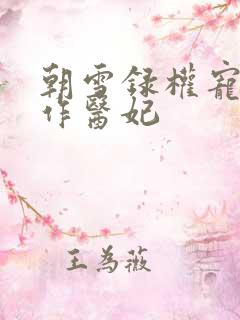 朝雪録權寵
作醫妃
王為薇